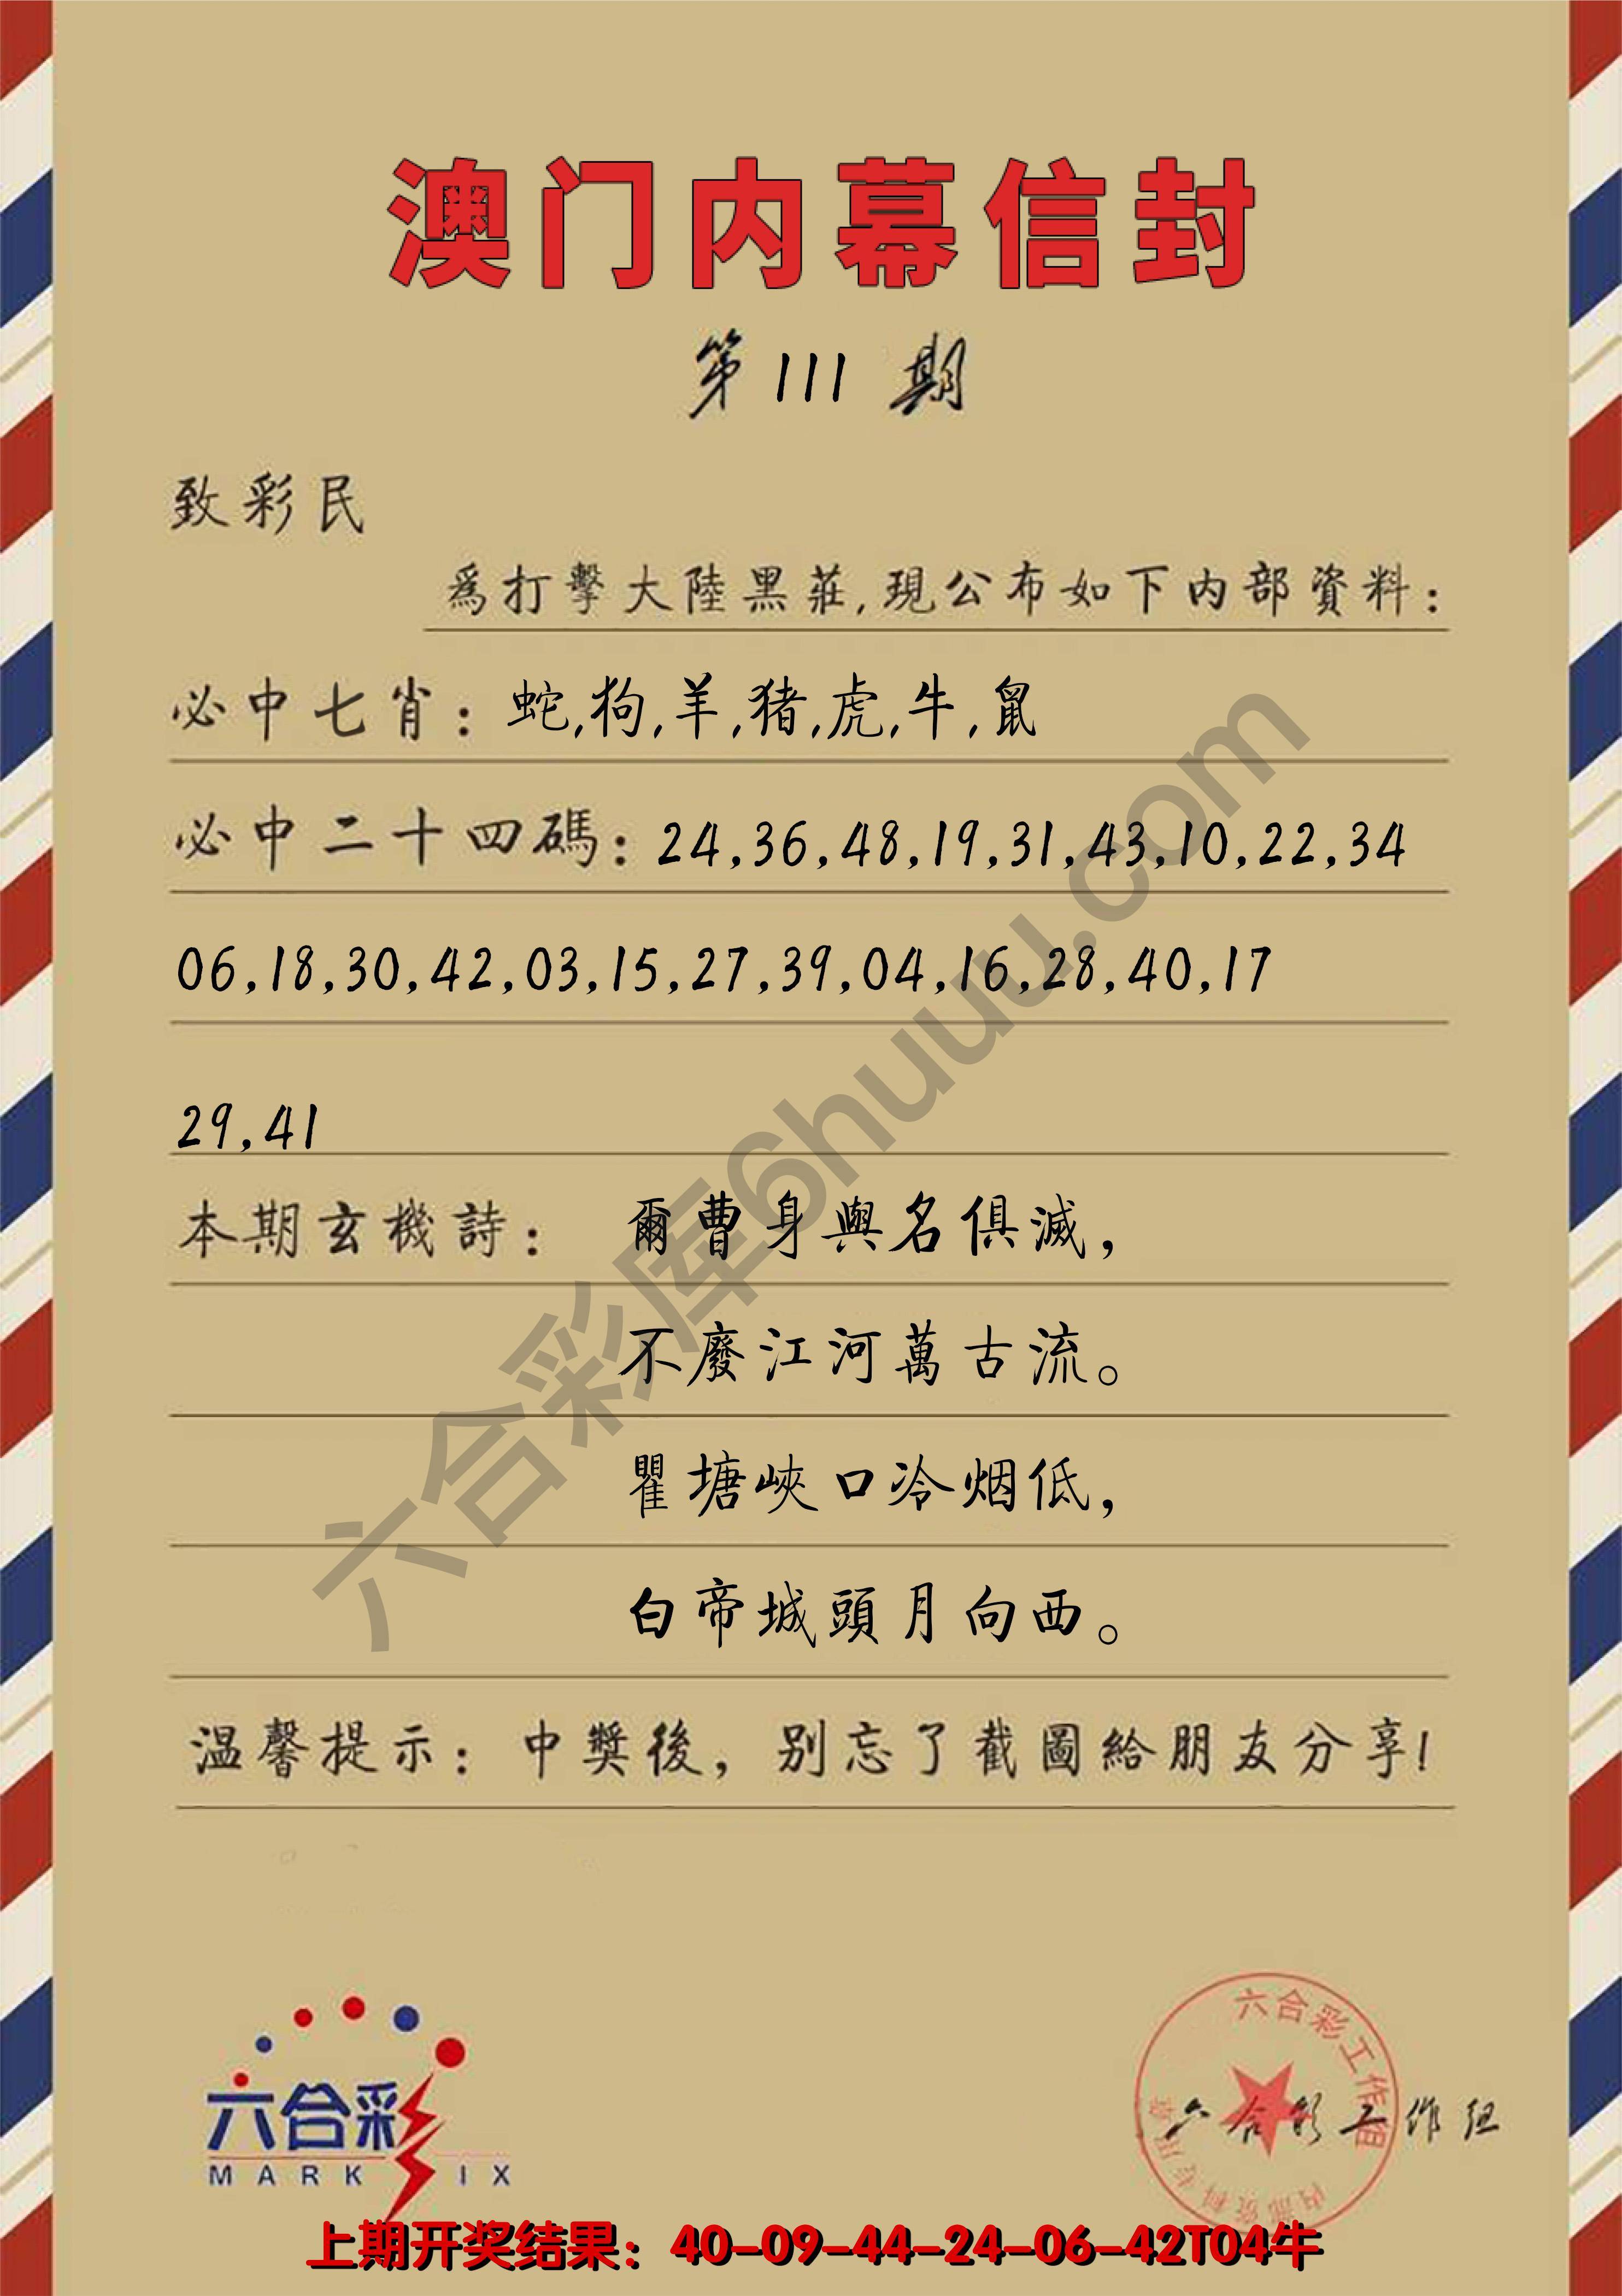 澳门内幕信封
第111期
致彩民
爲打擊大陸黑莊,現公布如下内部資料：
必中七肖：蛇,狗,羊,猪,虎,牛,鼠
必中二十四碼：24,36,48,19,31,43,10,22,34
06,18,30,42,03,15,27,39,04,16,28,40,17
29,41
本期玄機詩：爾曹身與名俱滅，
不廢江河萬古流。
瞿塘峽口冷烟低，
白帝城頭月向西。
温馨提示：中獎後，别忘了截圖給朋友分享！
六合彩库6huuu.com
六合彩
MARK IX
六合彩工作组
内部资料专用章
六合彩工作组
上期开奖结果：40-09-44-24-06-42T04牛